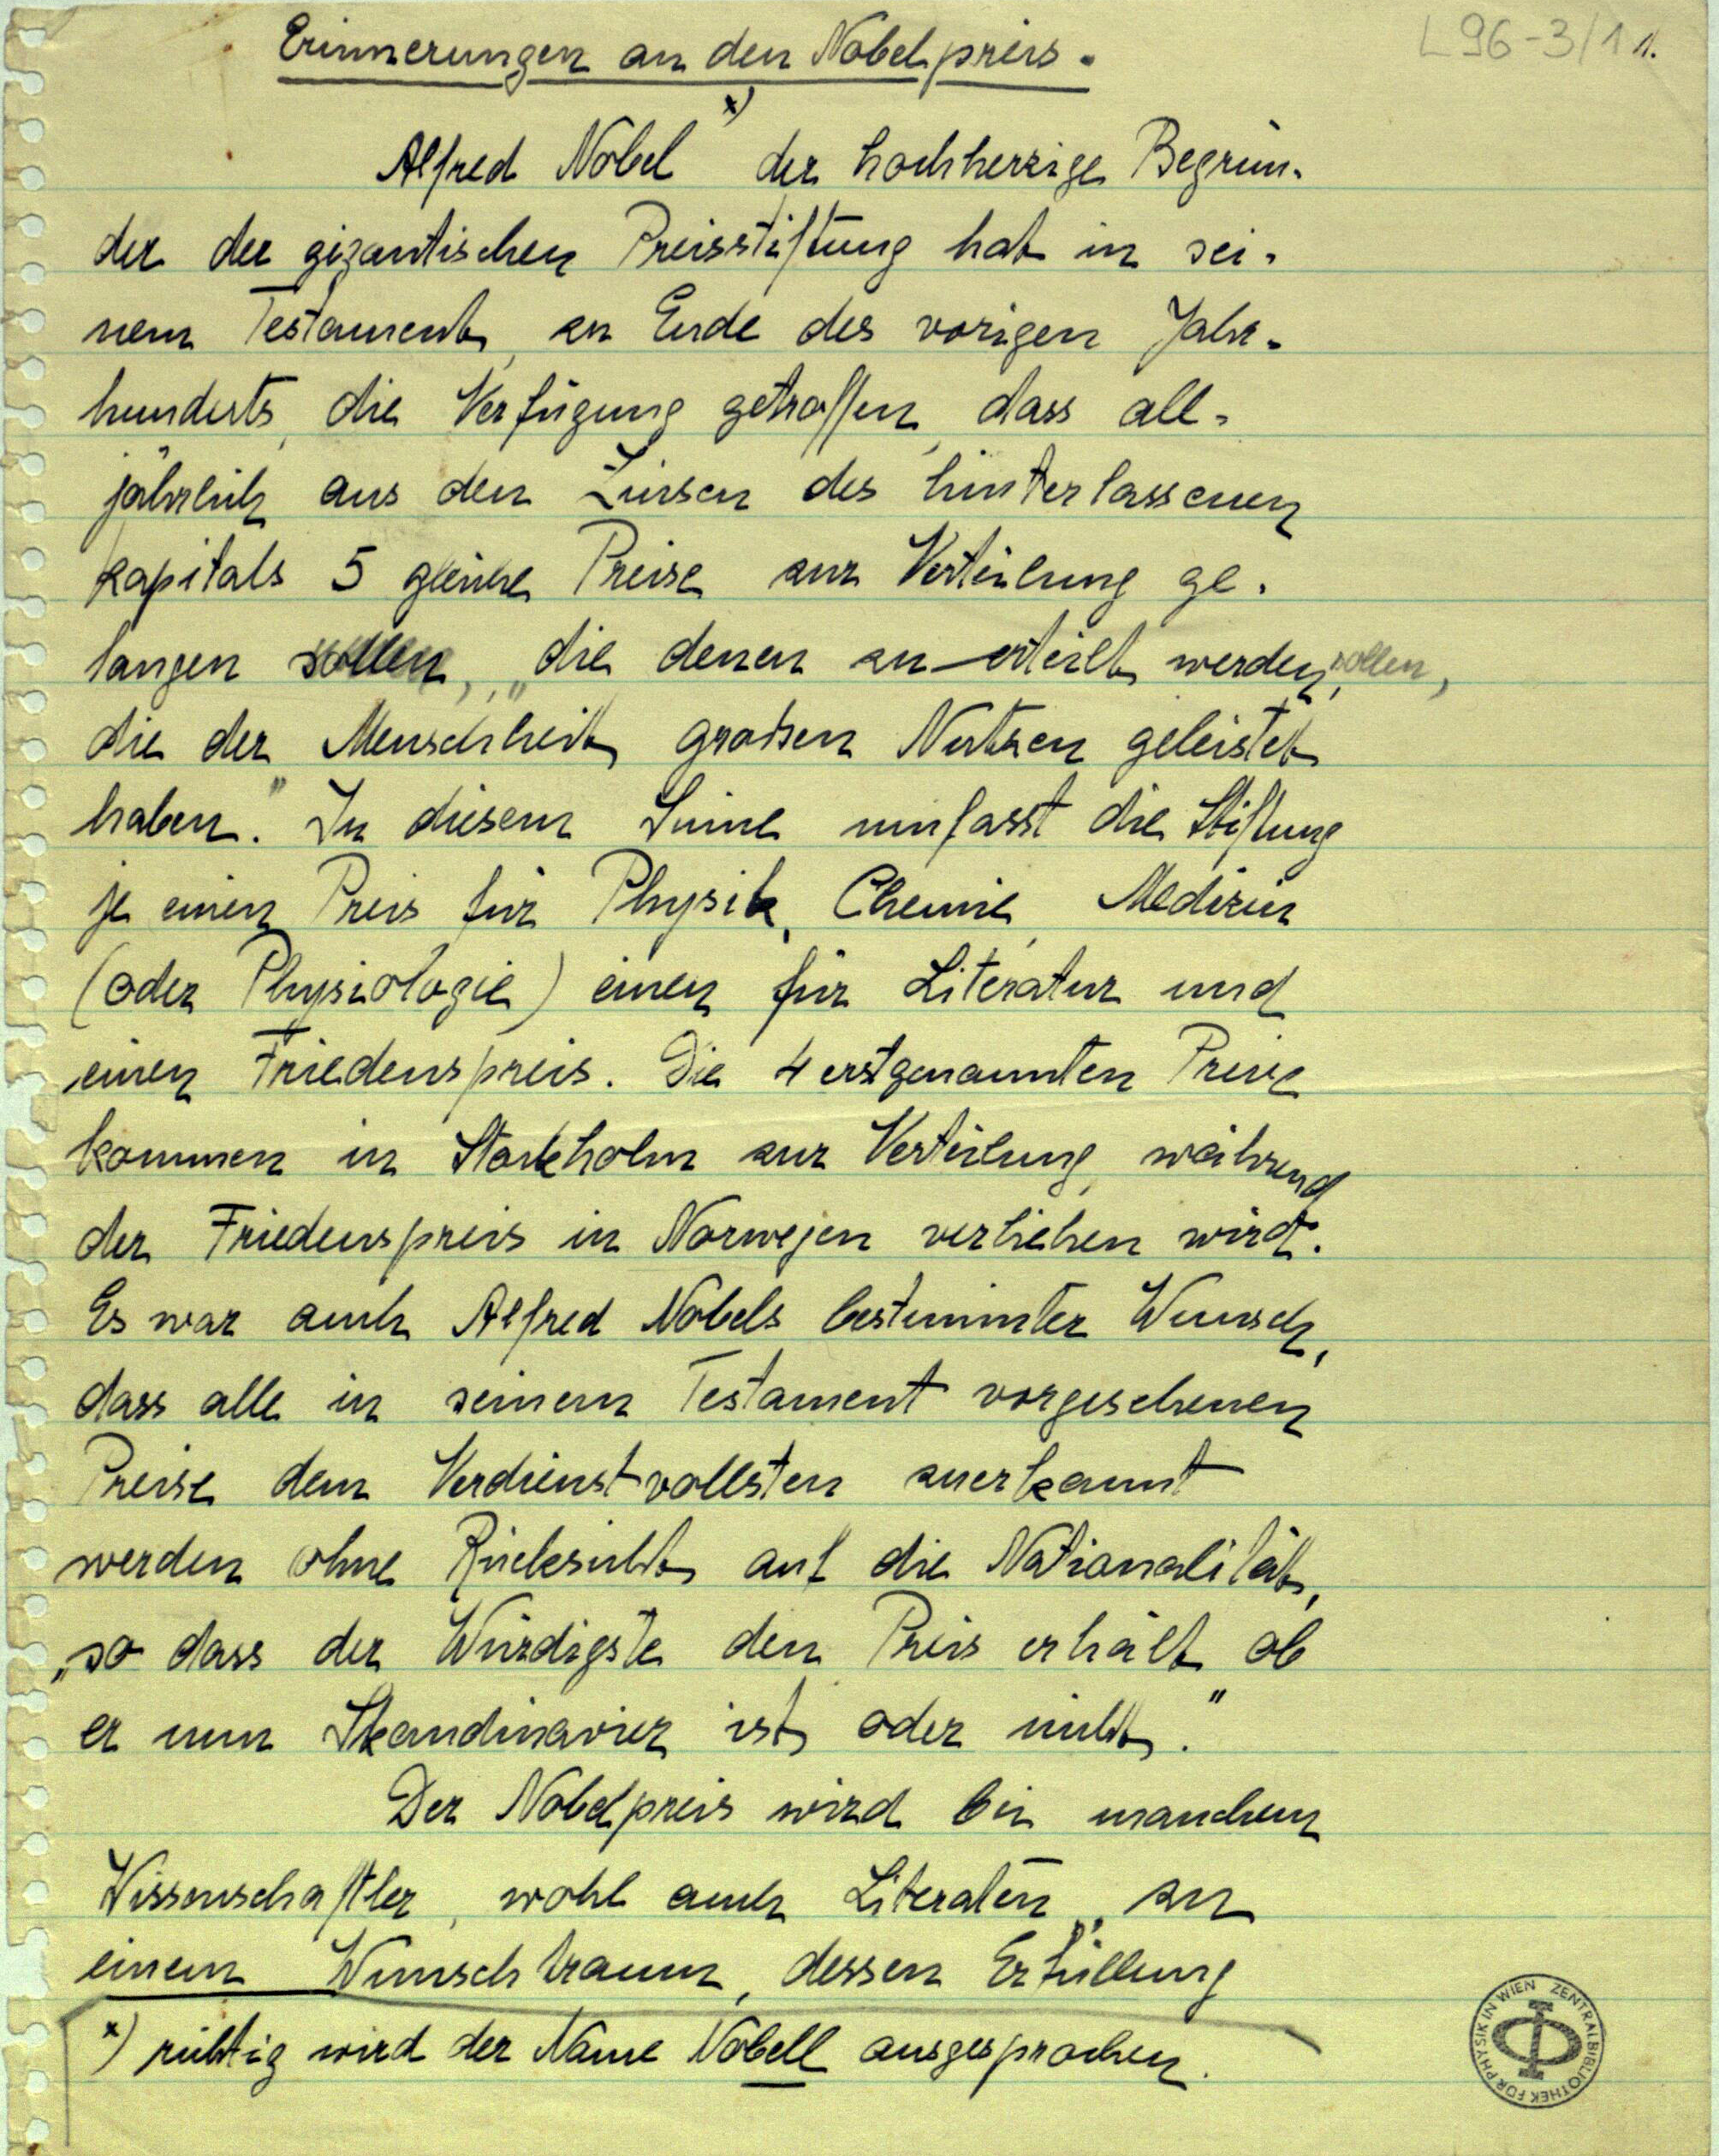 L 96-3/1 1.
Erinnerungen an den Nobelpreis.
Alfred Nobel x) der hochherzige Begrün-
der der gigantischen Preisstiftung hat in sei-
nem Testament, zu Ende des vorigen Jahr-
hunderts, die Verfügung getroffen, dass all-
jährlich aus den Zinsen des hinterlassenen
Kapitals 5 gleiche Preise zur Verteilung ge-
langen sollen, „die denen zu erteilt werden sollen,
die der Menschheit großen Nutzen geleistet
haben." In diesem Sinne umfasst die Stiftung
je einen Preis für Physik, Chemie, Medizin
(oder Physiologie) einen für Literatur und
einen Friedenspreis. Die 4 erstgenannten Preise
kommen in Stockholm zur Verteilung, während
der Friedenspreis in Norwegen verliehen wird.
Es war auch Alfred Nobels bestimmter Wunsch,
dass alle in seinem Testament vorgesehenen
Preise dem Verdienstvollsten zuerkannt
werden ohne Rücksicht auf die Nationalität,
„so dass der Würdigste den Preis erhält ob
er nun Skandinavier ist oder nicht."
Der Nobelpreis wird bei manchem
Wissenschaftler, wohl auch Literaten, zu
einem Wunschtraum, dessen Erfüllung
x) richtig wird der Name Nobell ausgesprochen.
ZENTRALBIBLIOTHEK FÜR PHYSIK IN WIEN